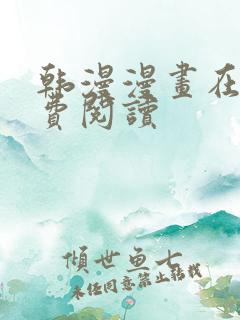 韩漫漫畫在
費閱讀
傾世魚七
未经同意禁止转载